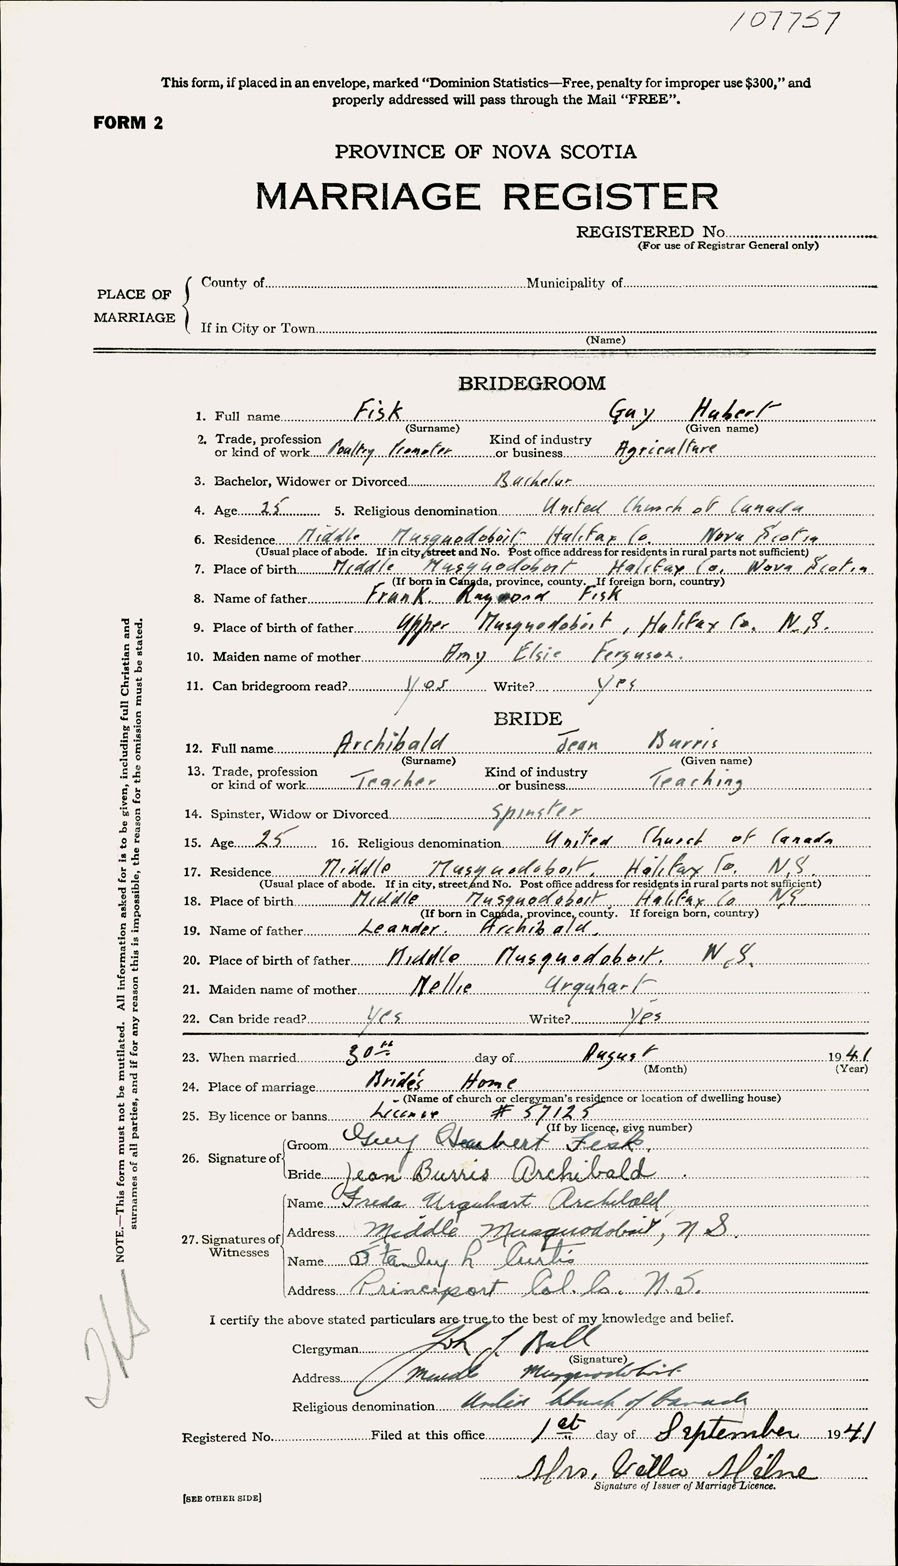 107757
This form, if placed in an envelope, marked "Dominion Statistics—Free, penalty for improper use $300," and
properly addressed will pass through the Mail "FREE".
FORM 2
PROVINCE OF NOVA SCOTIA
MARRIAGE REGISTER
REGISTERED No.
(For use of Registrar General only)
PLACE OF MARRIAGE
County of Municipality of
If in City or Town
(Name)
BRIDEGROOM
1. Full name Fisk Guy Hubert
(Surname) (Given name)
2. Trade, profession or kind of work Poultry Promoter Kind of industry or business Agriculture
3. Bachelor, Widower or Divorced Bachelor
4. Age 25 5. Religious denomination United Church of Canada
6. Residence Middle Musquodoboit Halifax Co. Nova Scotia
(Usual place of abode. If in city, street and No. Post office address for residents in rural parts not sufficient)
7. Place of birth Middle Musquodoboit Halifax Co. Nova Scotia
(If born in Canada, province, county. If foreign born, country)
8. Name of father Frank Raymond Fisk
9. Place of birth of father Upper Musquodoboit, Halifax Co. N.S.
10. Maiden name of mother Amy Elsie Ferguson.
11. Can bridegroom read? Yes Write? Yes
BRIDE
12. Full name Archibald Jean Burris
(Surname) (Given name)
13. Trade, profession or kind of work Teacher Kind of industry or business Teaching
14. Spinster, Widow or Divorced Spinster
15. Age 25 16. Religious denomination United Church of Canada
17. Residence Middle Musquodoboit. Halifax Co. N.S.
(Usual place of abode. If in city, street and No. Post office address for residents in rural parts not sufficient)
18. Place of birth Middle Musquodoboit, Halifax Co N.S
(If born in Canada, province, county. If foreign born, country)
19. Name of father Leander. Archibald.
20. Place of birth of father Middle Musquodoboit. N.S.
21. Maiden name of mother Nellie Urquhart
22. Can bride read? Yes Write? Yes
23. When married 30th day of August 1941
(Month) (Year)
24. Place of marriage Bride's Home
(Name of church or clergyman's residence or location of dwelling house)
25. By licence or banns License # 57125
(If by licence, give number)
26. Signature of
Groom Guy Hubert Fisk.
Bride Jean Burris Archibald.
27. Signatures of Witnesses
Name Freda Urquhart Archibald
Address Middle Musquodoboit, N.S.
Name Stanley L Curtis
Address Princeport Col. Co. N.S.
I certify the above stated particulars are true to the best of my knowledge and belief.
Clergyman J. Bull
(Signature)
Address Middle Musquodoboit.
Religious denomination United Church of Canada
Registered No. Filed at this office 1st day of September 1941
Mrs. Milne
Signature of Issuer of Marriage Licence.
[SEE OTHER SIDE]
NOTE.—This form must not be mutilated. All information asked for is to be given, including full Christian and
surnames of all parties, and if for any reason this is impossible, the reason for the omission must be stated.